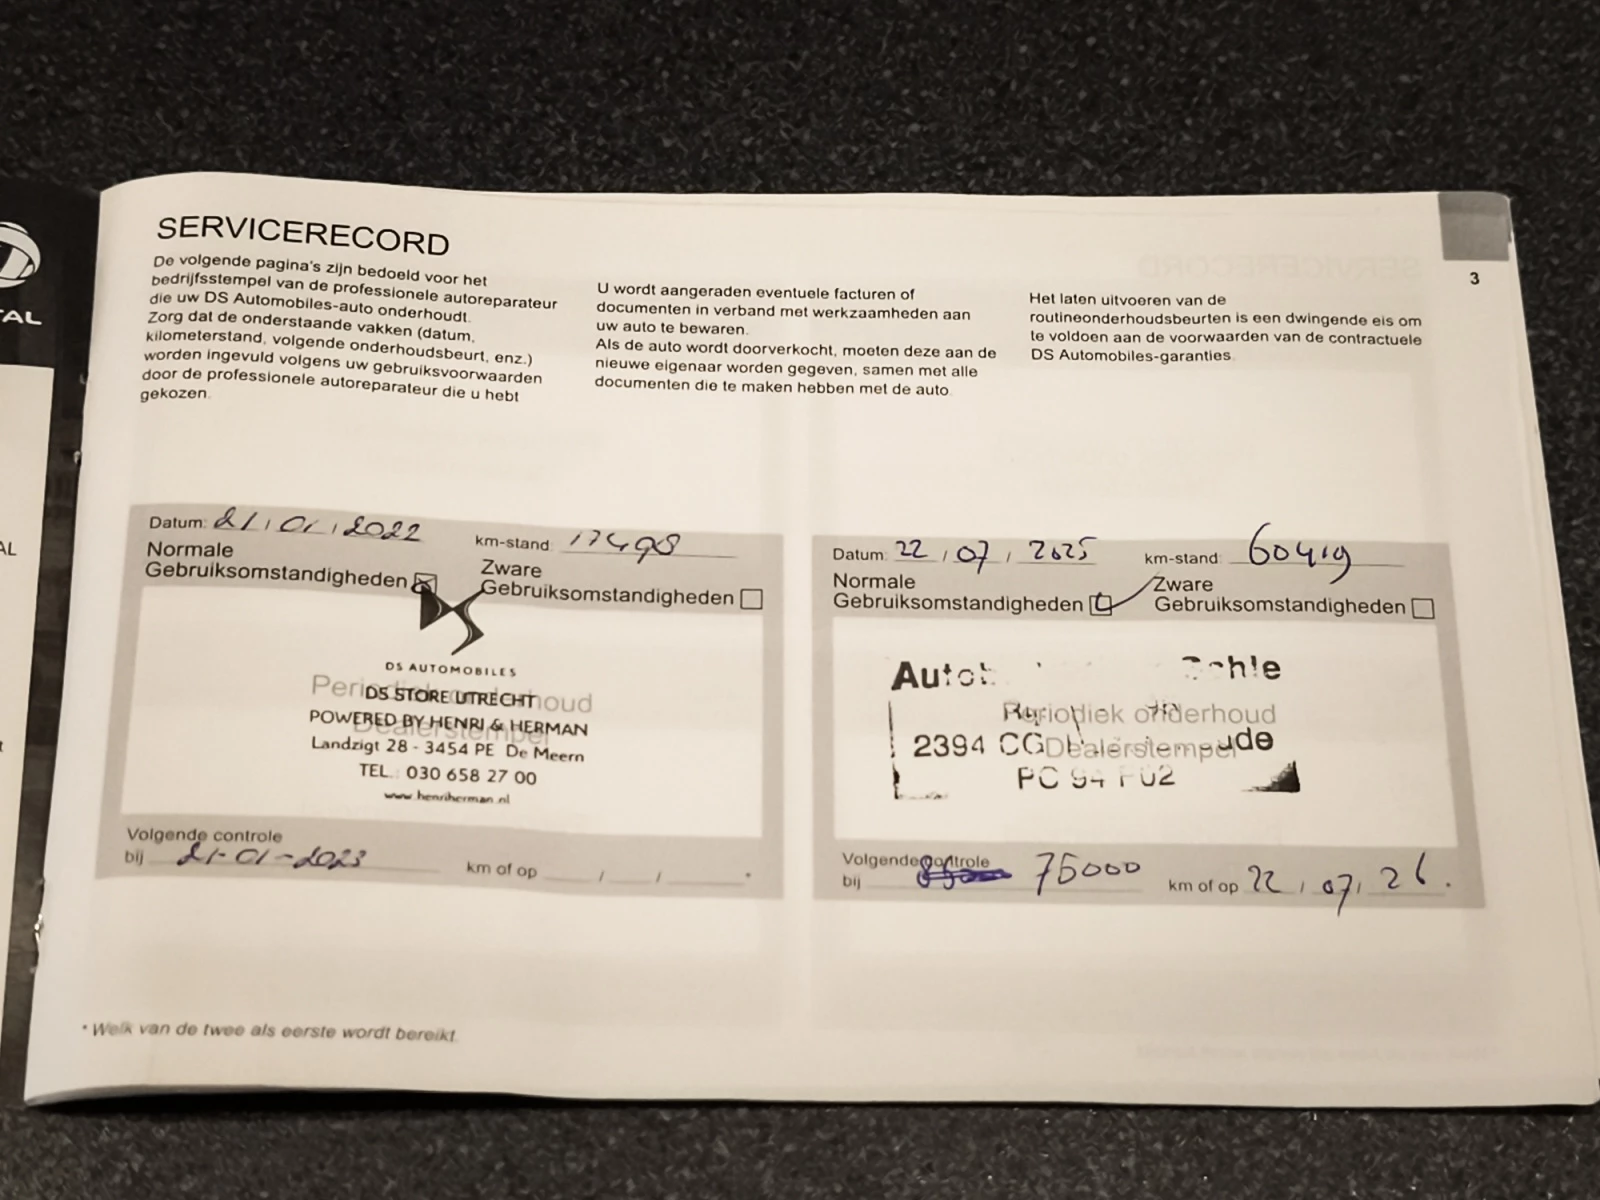 AL
AL
t
SERVICERECORD
3
De volgende pagina's zijn bedoeld voor het
bedrijfsstempel van de professionele autoreparateur
die uw DS Automobiles-auto onderhoudt.
Zorg dat de onderstaande vakken (datum,
kilometerstand, volgende onderhoudsbeurt, enz.)
worden ingevuld volgens uw gebruiksvoorwaarden
door de professionele autoreparateur die u hebt
gekozen.
U wordt aangeraden eventuele facturen of
documenten in verband met werkzaamheden aan
uw auto te bewaren.
Als de auto wordt doorverkocht, moeten deze aan de
nieuwe eigenaar worden gegeven, samen met alle
documenten die te maken hebben met de auto.
Het laten uitvoeren van de
routineonderhoudsbeurten is een dwingende eis om
te voldoen aan de voorwaarden van de contractuele
DS Automobiles-garanties.
Datum: 21 / 01 / 2022 km-stand: 17498
Normale
Gebruiksomstandigheden
Zware
Gebruiksomstandigheden
DS AUTOMOBILES
Periodiek onderhoud
DS STORE UTRECHT
POWERED BY HENRI & HERMAN
Dealerstempel
Landzigt 28 - 3454 PE De Meern
TEL.: 030 658 27 00
www.henriherman.nl
Volgende controle
bij 21-01-2023 km of op / / *
Datum: 22 / 07 / 2025 km-stand: 60419
Normale
Gebruiksomstandigheden
Zware
Gebruiksomstandigheden
Periodiek onderhoud
2394 CG
Dealerstempel
Volgende controle
bij 75000 km of op 22 / 07 / 26.
* Welk van de twee als eerste wordt bereikt.